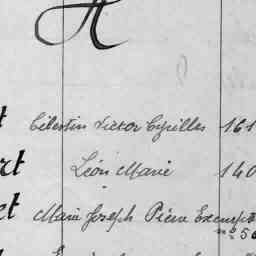 A
t Célestin Victor Cyrilles 161
rt Léon Marie 140
et Marie Joseph Pierre Exempt
n° 50